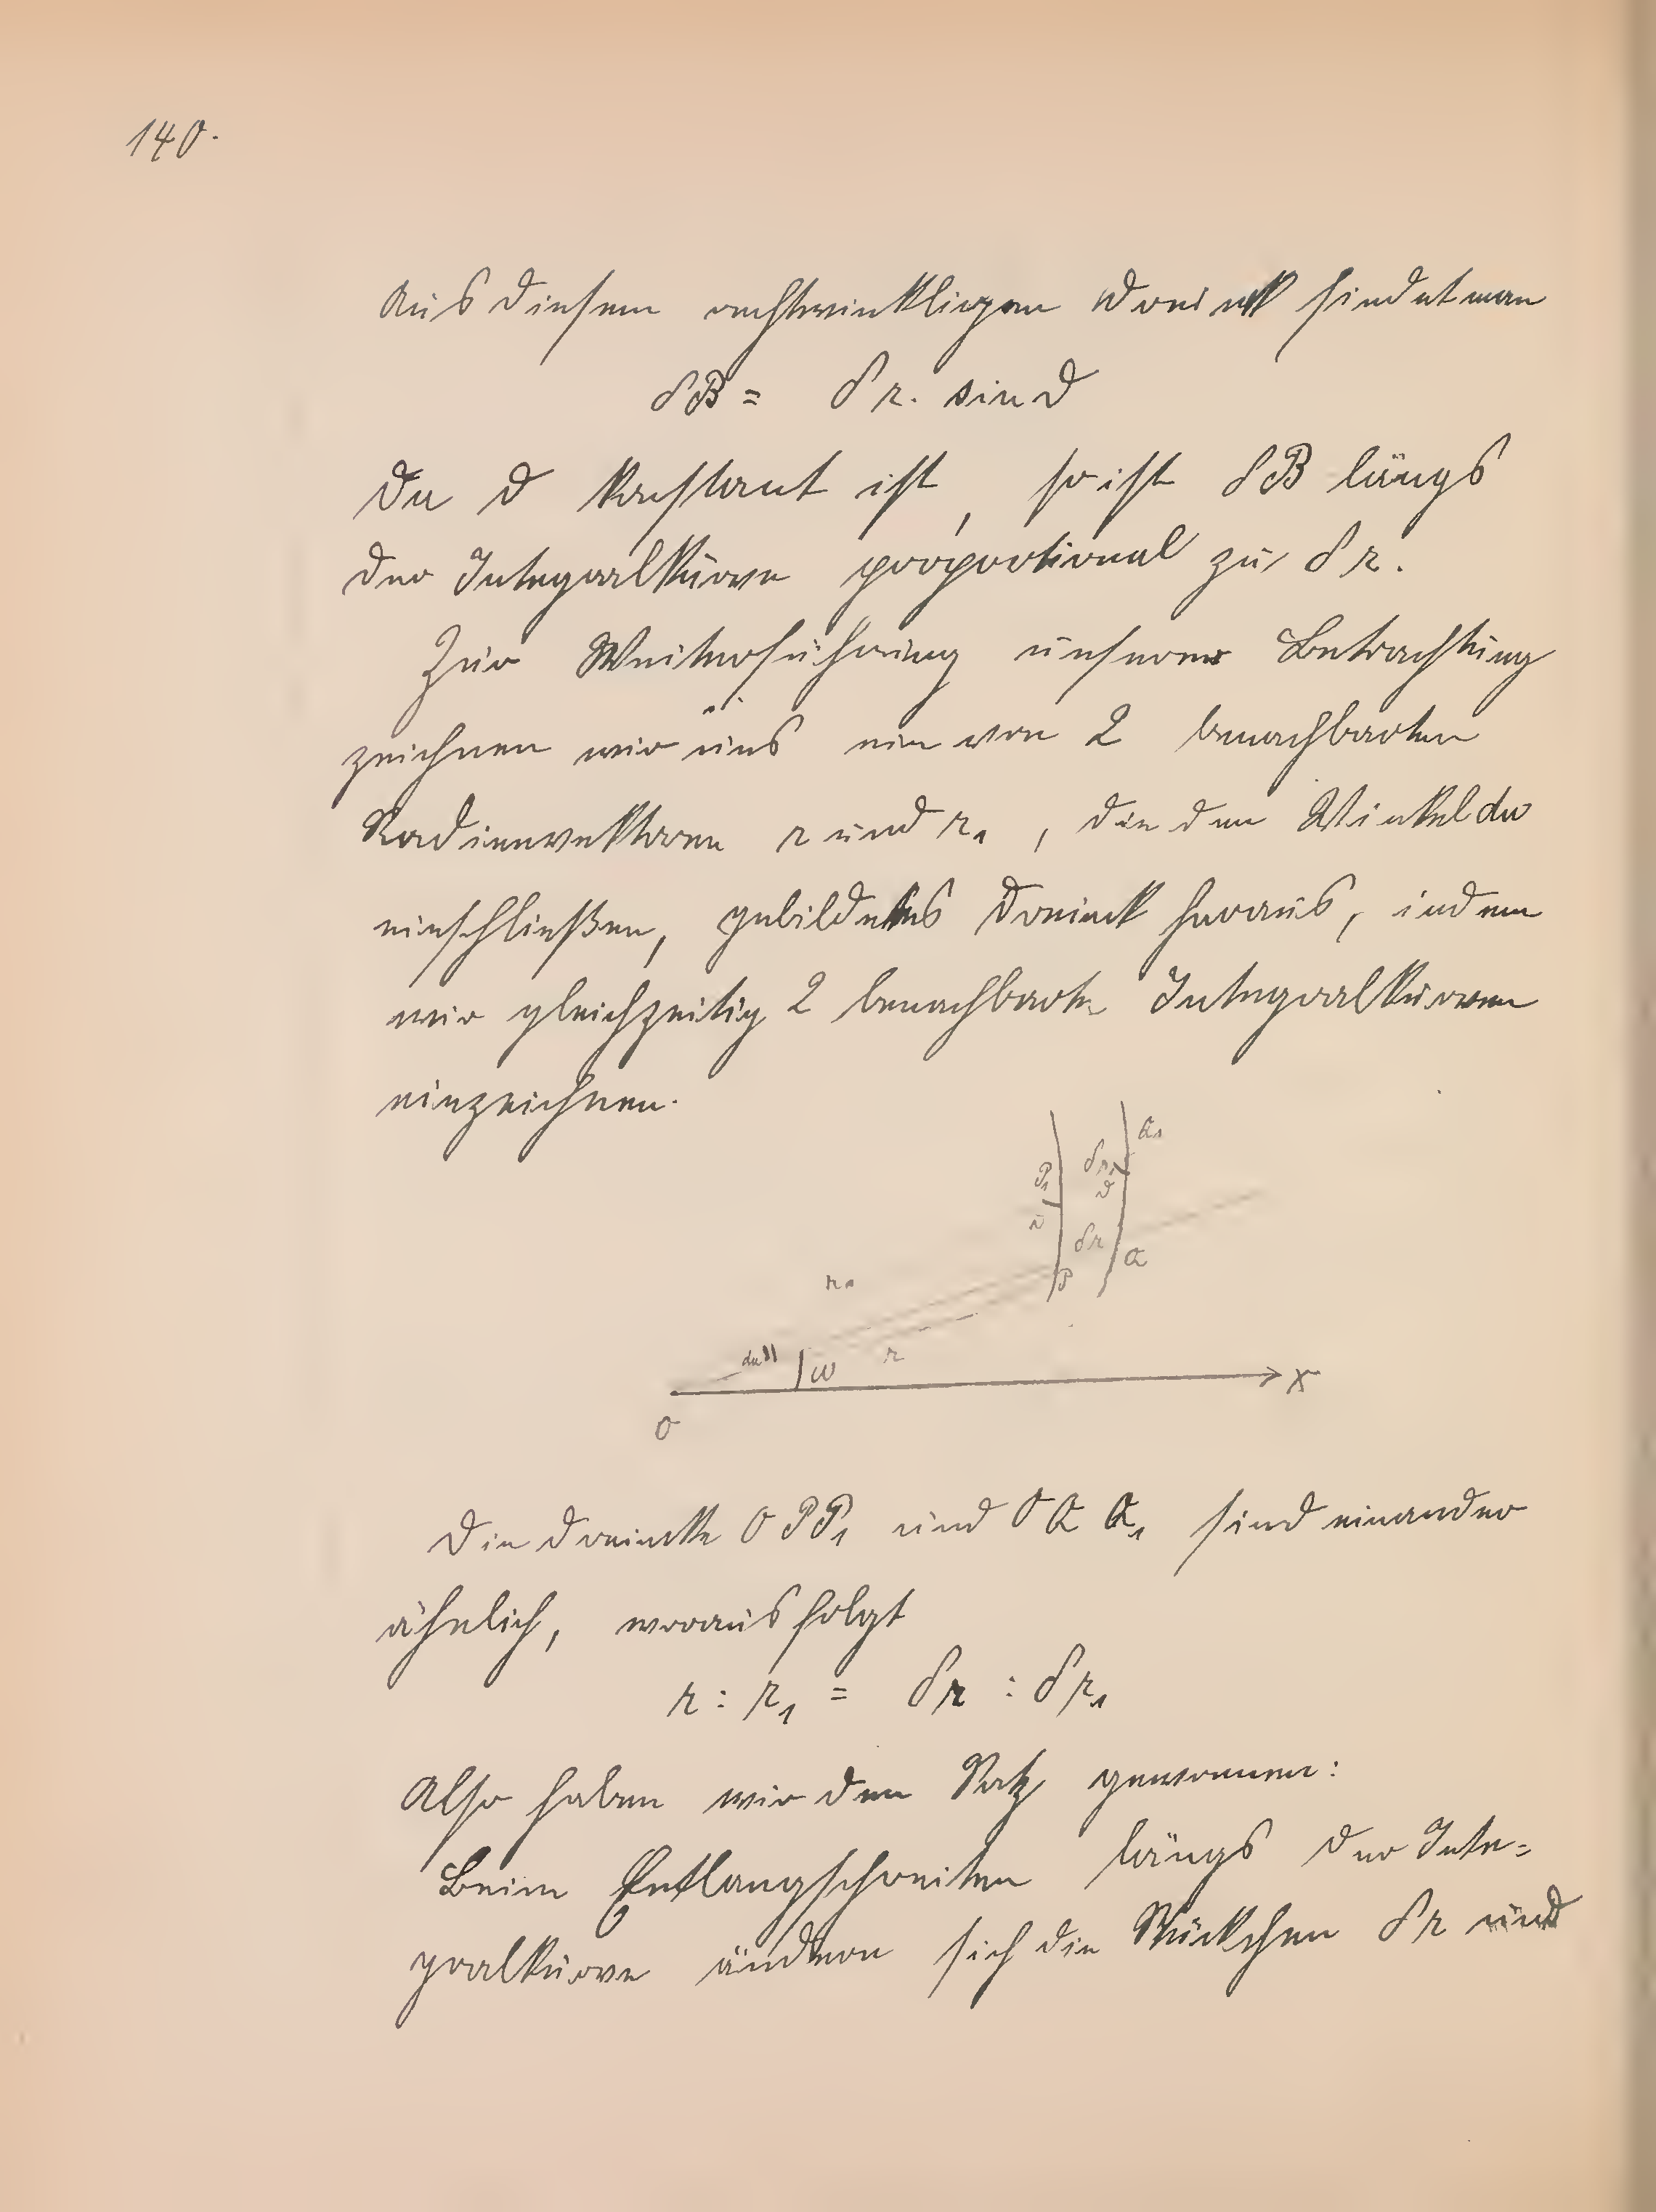 140.
Aus diesem rechtwinkligen Dreieck findet man
δB = δr. sin ϑ
Da ϑ konstant ist, so ist δB längs
der Integralkurve proportional zu δr.
Zur Weiterführung unserer Betrachtung
zeichnen wir uns ein von 2 benachbarten
Radienvektoren r und r₁, die den Winkel dω
einschließen, gebildetes Dreieck heraus, indem
wir gleichzeitig 2 benachbarte Integralkurven
einzeichnen.
Q₁
P₁ δr₁
ϑ ϑ
δr Q
P
r₁
dω ω r
X
O
Die Dreiecke OPP₁ und OQQ₁ sind einander
ähnlich, woraus folgt
r : r₁ = δr : δr₁
Also haben wir den Satz gewonnen:
Beim Entlangschreiten längs der Inte=
gralkurve ändern sich die Stückchen δr und